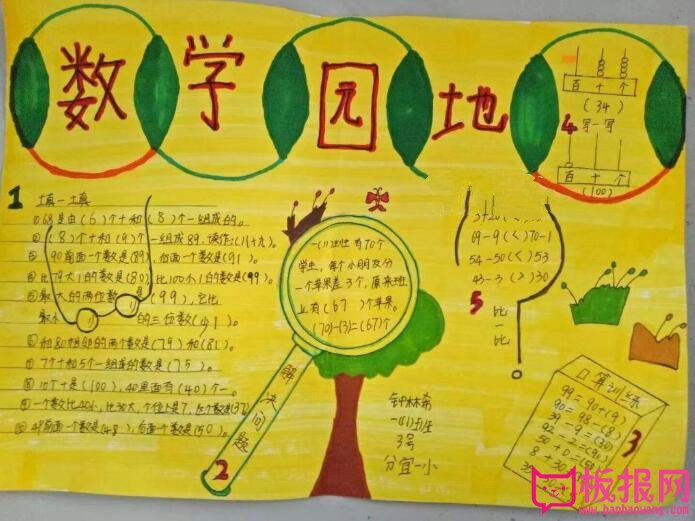 数学园地
百十个
(34)
4 写一写
百十个
(100)
1 填一填
①68是由(6)个十和(8)个一组成的。
②(8)个十和(9)个一组成89,读作:(八十九)。
③90前面一个数是(89),后面一个数是(91)。
④比79大1的数是(80),比100小1的数是(99)。
⑤最大的两位数是(99),它比
最小的三位数(少1)。
⑥和80相邻的两个数是(79)和(81)。
⑦7个十和5个一组成的数是(75)。
⑧10个十是(100),40里面有(40)个一。
⑨一个数比40小,比30大,个位上是7,这个数是(37)
⑩49前面一个数是(48),后面一个数是(50)。
一(1)班有70个
学生,每个小朋友分
一个苹果差3个,原来班
上有(67)个苹果。
(70)-(3)=(67)个
解决问题
2
69-9(<)70-1
54-50(<)53
43-3(>)30
5 比一比
钟林希
一(1)班
3号
分宜一小
口算训练
99=90+(9)
90=98-(8)
39-9=(30)
92-2=(90)
3
板报网
www.banbaowang.com